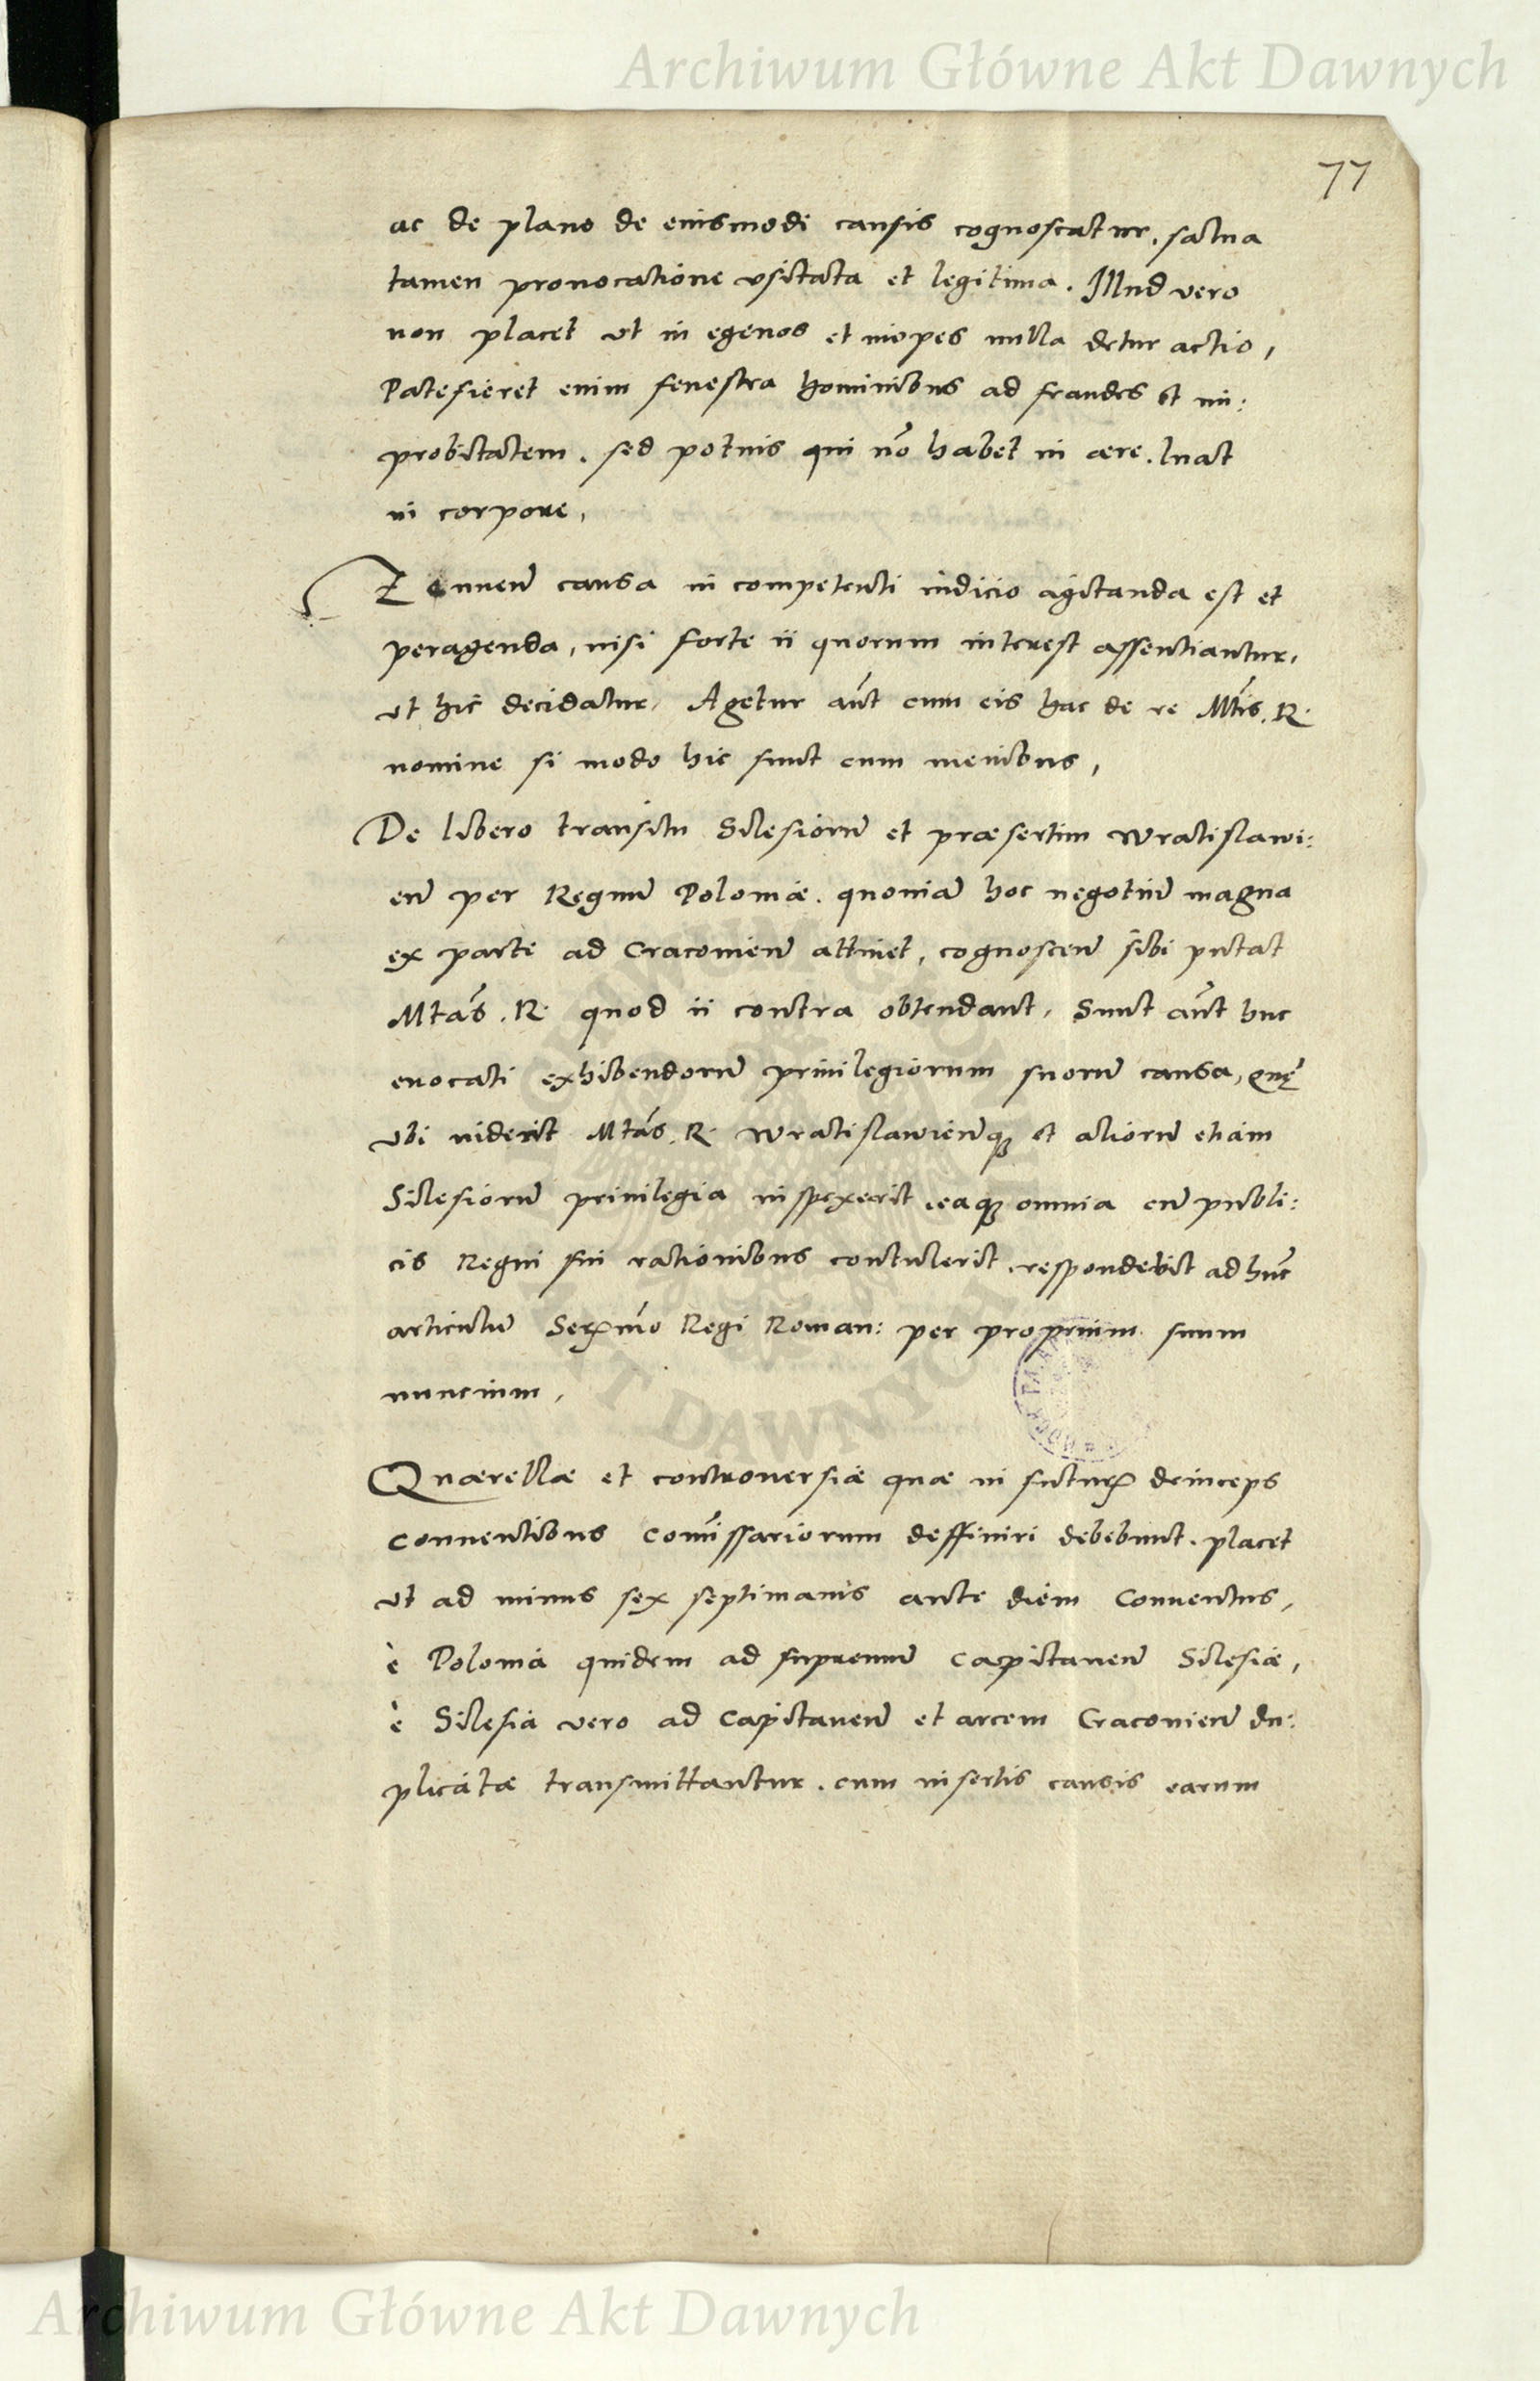 Archiwum Główne Akt Dawnych
77
ac de plano de eiusmodi causis cognoscatur. salua
tamen prouocatione vsitata et legitima. Illud vero
non placet vt in egenos et inopes nulla detur actio,
Patefieret enim fenestra hominibus ad fraudes et im:
probitatem. sed potuis qui nõ habet in aere. luat
in corpore,
causa in competenti iudicio agitanda est et
peragenda, nisi forte ii quorum interest assentiantur,
vt hic decidatur, Agetur aũt cum eis hac de re Mtis. R.
nomine si modo hic sunt cum meinibus,
De libero transitu Silesiorũ et præsertim Wratislawi:
eñ per Regnũ Poloniæ. quoniã hoc negotiũ magna
ex parte ad Cracovieñ attinet, cognosceñ sibi putat
Mtãs. R. quod ii contra obtendant, Sunt aũt huc
euocati exhibendorũ priuilegiorum suorũ causa, quę
vbi viderit Mtãs. R. Wratislawieñq₃ et aliorũ etiam
Silesiorũ priuilegia inspexerit eaq₃ omnia cũ publi:
cis Regni sui rationibus contulerit. respondebit ad hũc
articulũ Serẽmo Regi Roman: per proprium suum
nuncium,
Quærellæ et controuersiæ quæ in futuris deinceps
conuentibus com̃issariorum deffiniri debebunt. placet
vt ad minus sex septimanis ante diem Conuentus,
è Polonia quidem ad supremũ Capitaneũ Silesiæ,
è Silesia vero ad Capitaneũ et arcem Cracovieñ du:
plicatæ transmittantur. cum insertis causis earum
Archiwum Główne Akt Dawnych